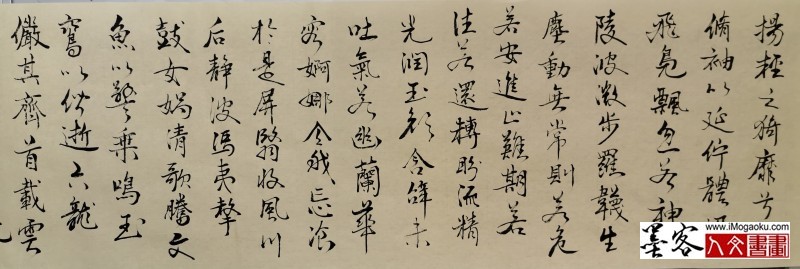 揚輕之猗靡兮
脩袖以延佇體迅
飛鳧飄忽若神
陵波微步羅韈生
塵動無常則若危
若安進止難期若
往若還轉眄流精
光潤玉顏含辭未
吐氣若幽蘭華
容婀娜令我忘飡
於是屏翳收風川
后靜波馮夷擊
鼓女媧清歌騰文
魚以警乘鳴玉
鸞以偕逝六龍
儼其齊首載雲
墨客
人文書畫
www.iMogaoku.com